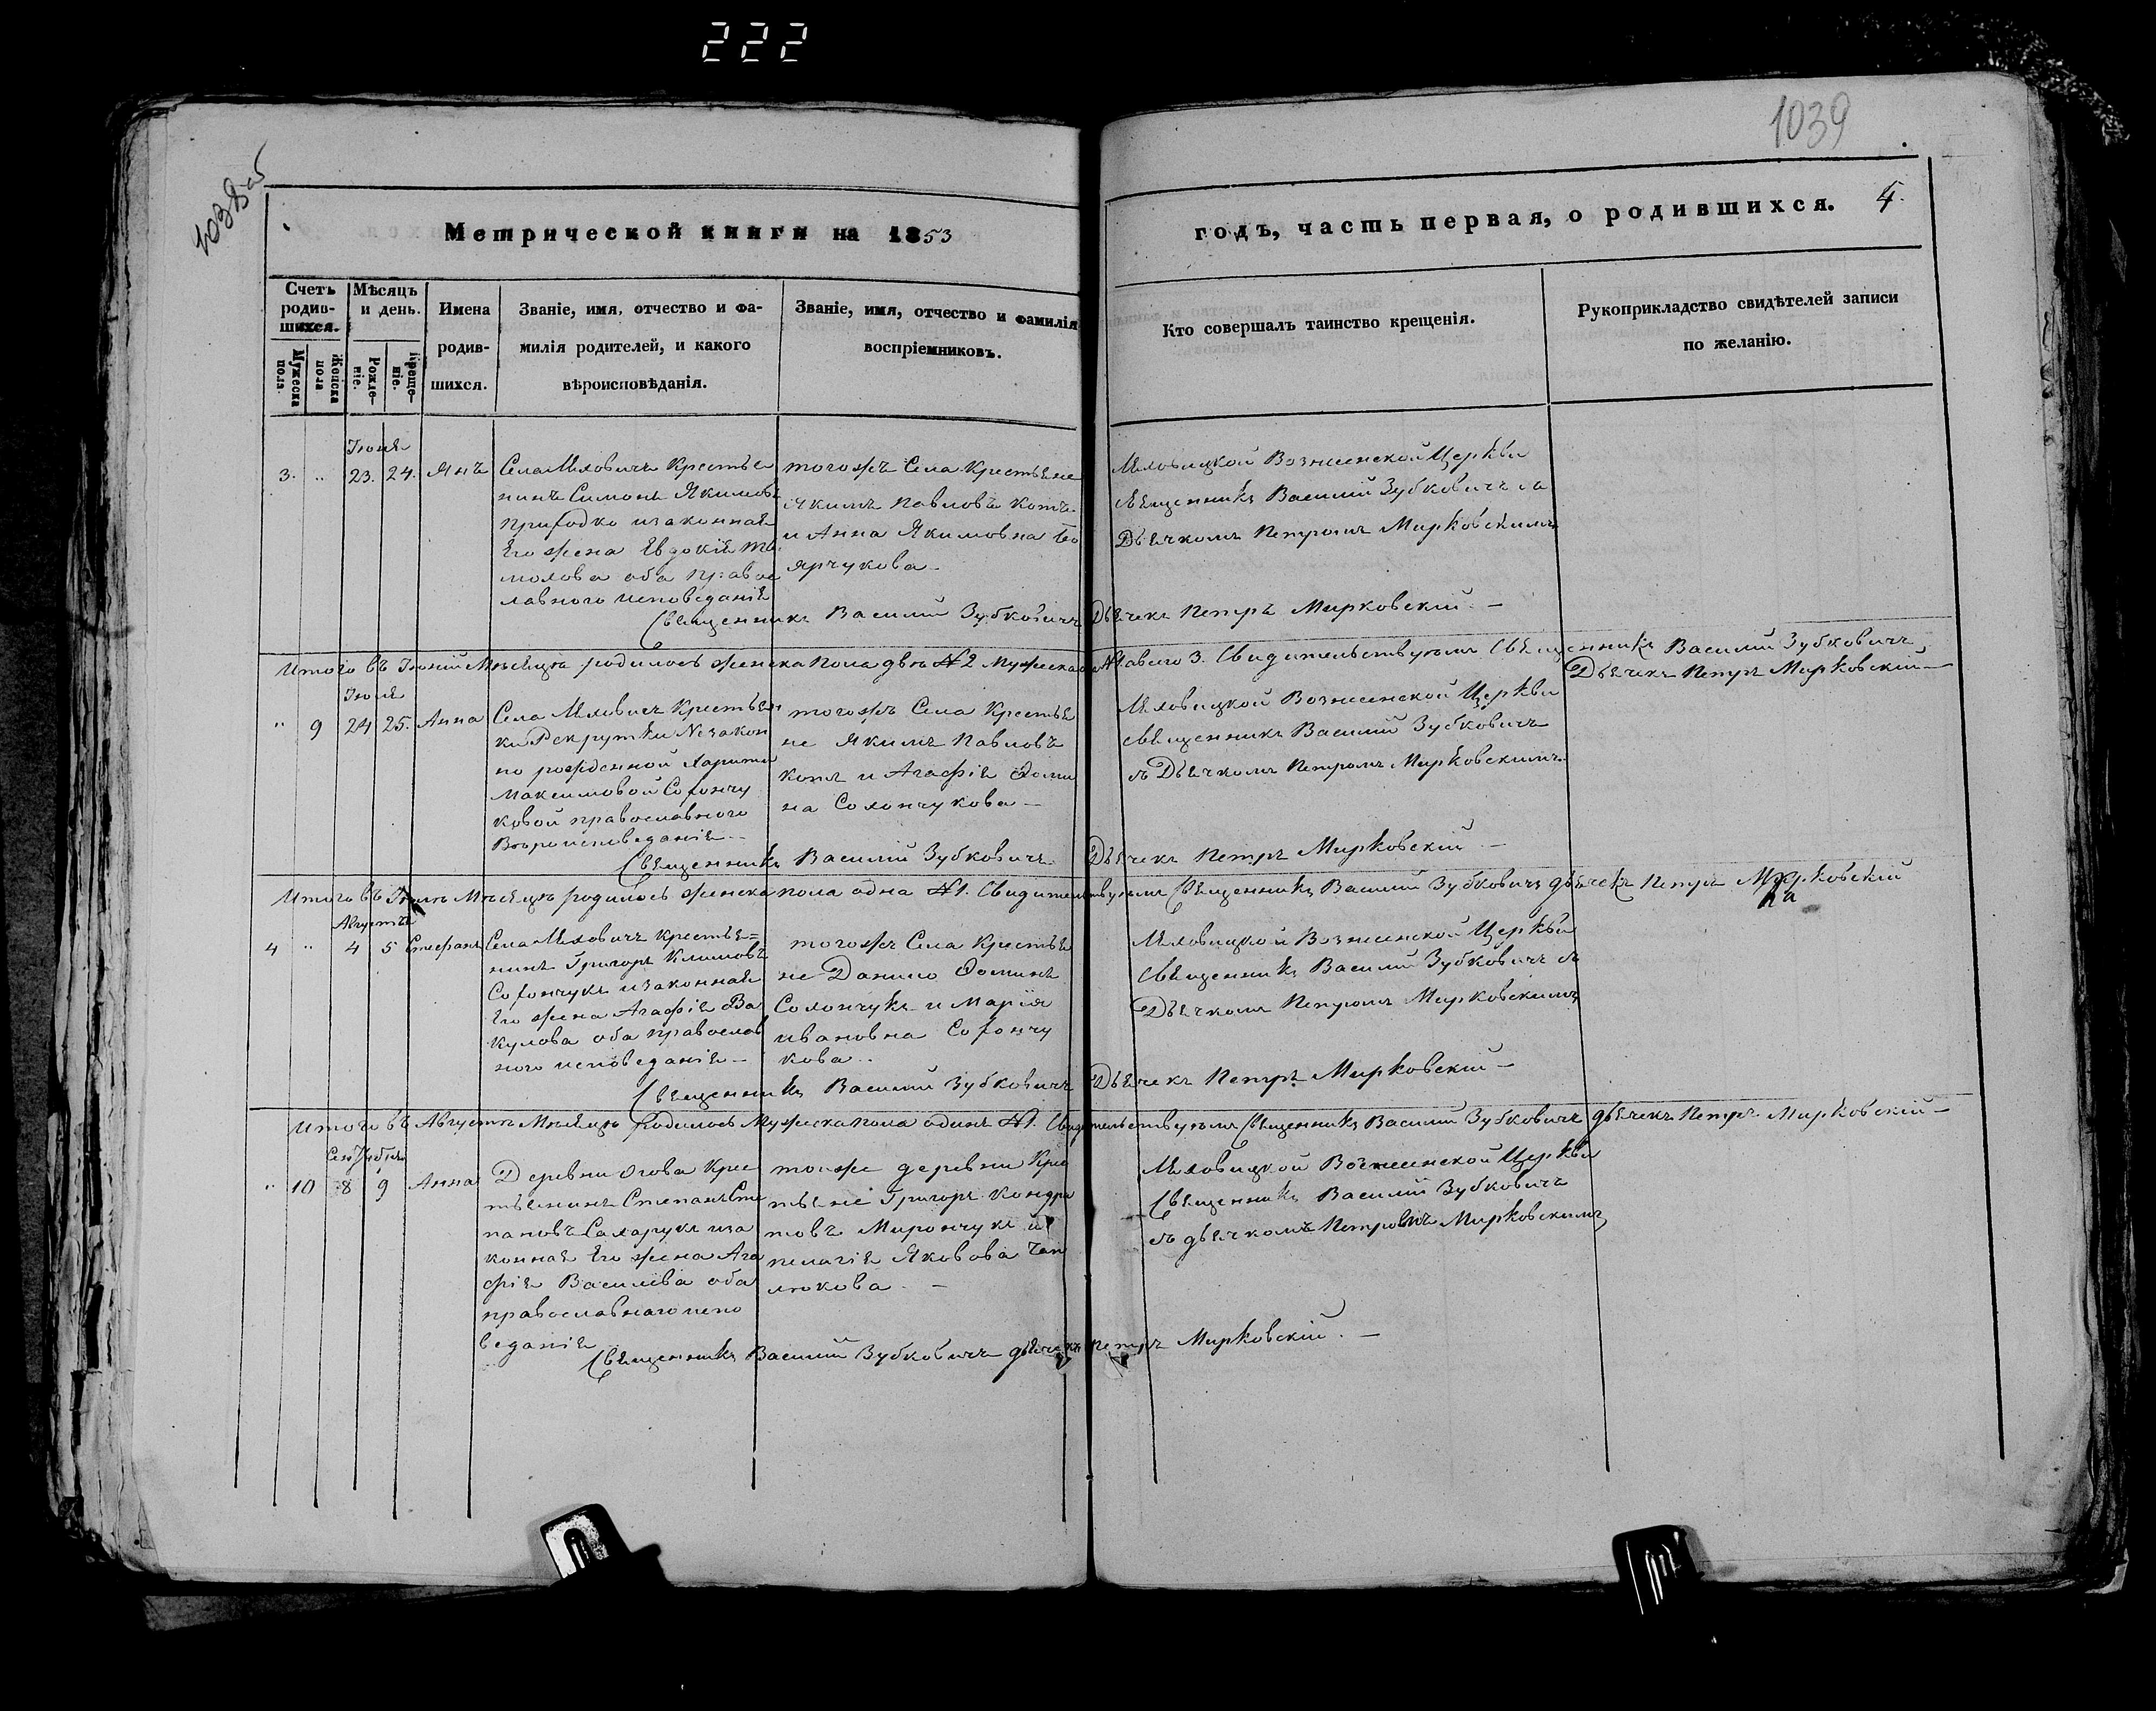 222
1039
1038 об
Метрической книги на 1853
годъ, часть первая, о родившихся. 4.
Счетъ родив-шихся.
Мужеска пола.
Женска пола
Мѣсяцъ и день.
Рожде-ніе.
Креще-ніе.
Имена
родив-
шихся.
Званіе, имя, отчество и фа-
милія родителей, и какого
вѣроисповѣданія.
Званіе, имя, отчество и фамилія
воспріемниковъ.
Кто совершалъ таинство крещенія.
Рукоприкладство свидѣтелей записи
по желанію.
3. „ 23. 24. Янъ
нинъ Симонъ Якимовъ
Приходко изаконная
Его жена Евдокія
оба Правос
лавного исповеданія
тогожъ Села Крестьяне
Якимъ Павловъ Котъ
и Анна Якимовна Бо
ярчукова
Вознесенской Церкви
Священникъ Василий Зубковичъ съ
Дьячкомъ Петромъ Мирковскимъ
Священникъ Василий Зубковичъ Дьячекъ Петръ Мирковский —
Итого въ Июний Мѣсяцъ родилось женска пола двѣ №2 Мужеска Свидительствуемъ Священникъ Василий Зубковичъ
Дьячекъ Петръ Мирковский —
„ 9 24 25. Анна
по рожденной
Максимовой Солончу
ковой православного
Вѣроисповеданія —
тогожъ Села Крестья
не Якимъ Павловъ
Котъ и Агафія Доми
на Солончукова —
Вознесенской Церкви
священникъ Василий Зубковичъ
съ Дьячкомъ Петромъ Мирковскимъ
Священникъ Василий Зубковичъ Дьячекъ Петръ Мирковский —
Итого въ Мѣсяцъ родилось женска пола одна №1. Свидительствуемъ Священникъ Василий Зубковичъ дьячекъ Петръ Мирковский
Августъ
4 „ 4 5 Стефанъ
нинъ Григоръ Климовъ
Солончукъ изаконная
Его жена Агафія Ва
кулова оба православ
ного исповеданія —
тогожъ Села Крестья
не Данило Доминъ
Солончукъ и Марія
ивановна Солончу
кова —
Вознесенской Церкви
Священникъ Василий Зубковичъ съ
Дьячкомъ Петромъ Мирковскимъ
Священникъ Василий Зубковичъ Дьячекъ Петръ Мирковский —
Итого въ Августъ Мѣсяцъ Родилось Мужеска пола одинъ №1. Свидительствуемъ Священникъ Василий Зубковичъ дьячекъ Петръ Мирковский —
„ 10 8 9 Анна
Деревни Огова Крес
тьянинъ Степанъ Сте
пановъ Сахарукъ иза
конная Его жена Ага
фія Василева оба
православнаго испо
веданія
тояже деревни Крес
тьяне Григоръ Кондра
товъ Мирончукъ и
пелагія Яковова
люкова —
Вознесенской Церкви
Священникъ Василий Зубковичъ
съ дьячкомъ Петромъ Мирковскимъ
Священникъ Василий Зубковичъ дьячекъ Петръ Мирковский. —